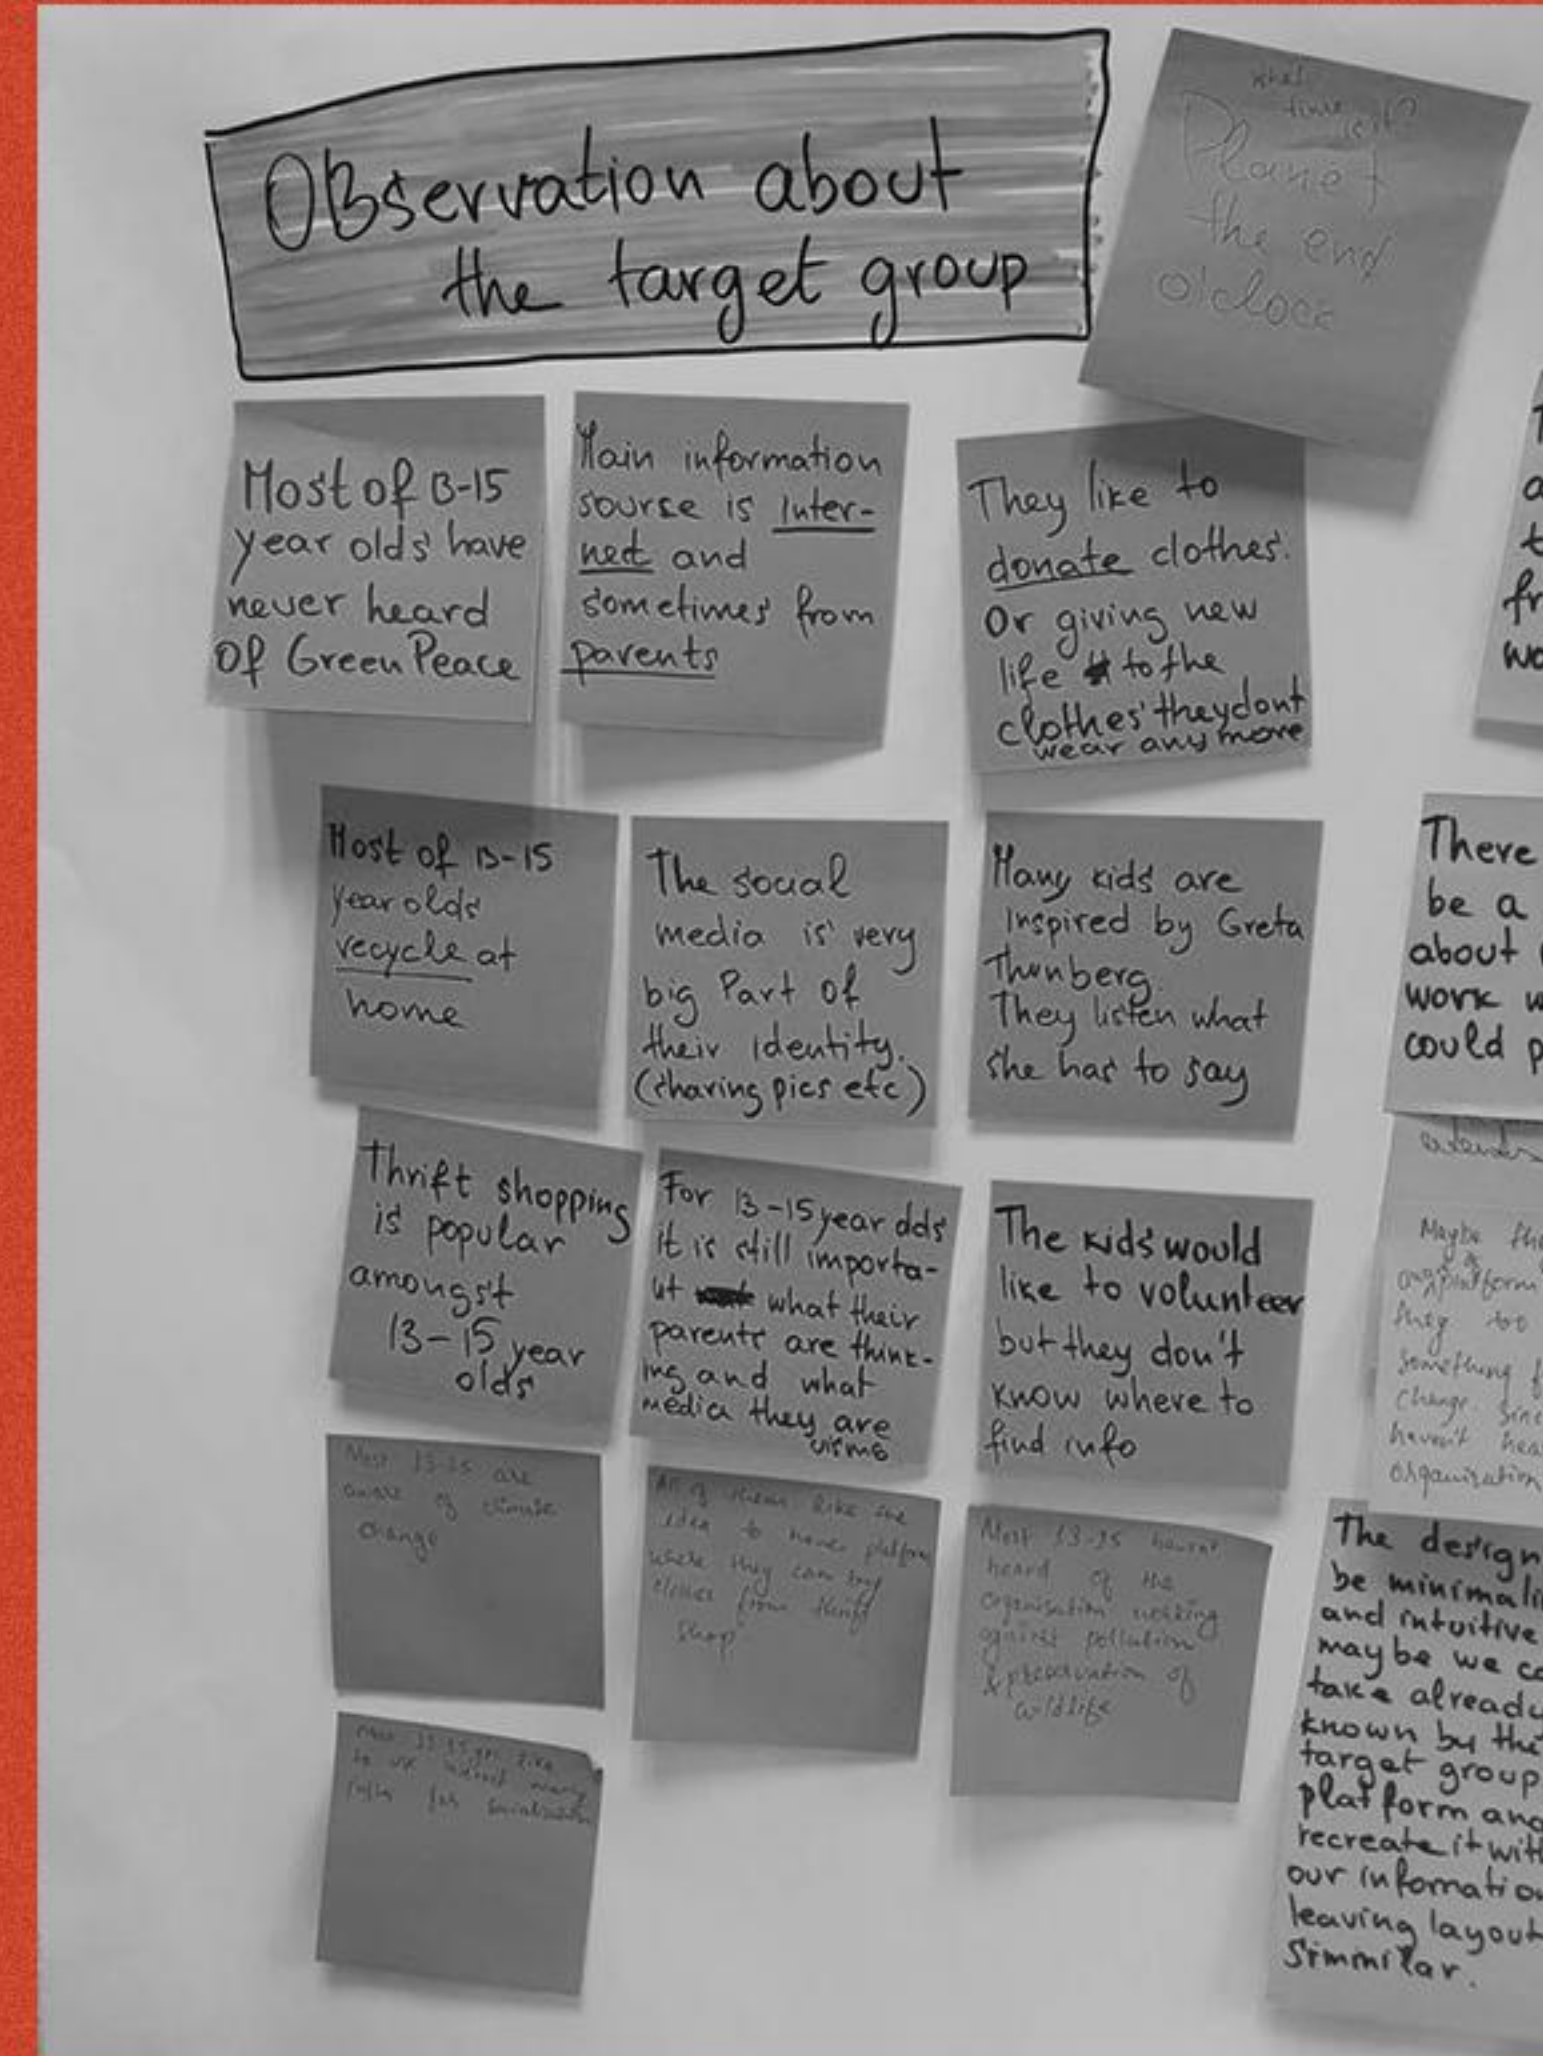 OBservation about
the target group
what
time
is it?
Planet
the end
o'clock
Most of 13-15
year olds have
never heard
Of GreenPeace
Main information
sourse is Inter-
net and
sometimes from
parents
They like to
donate clothes.
Or giving new
life to the
clothes they dont
wear any more
Most of 13-15
year olds
recycle at
home
The social
media is very
big Part of
their Identity.
(sharing pics etc)
Many kids are
Inspired by Greta
Thunberg.
They listen what
she has to say
There
be a
about
work
could p
Thrift shopping
is popular
amongst
13-15 year
olds
For 13-15 year olds
it is still importa-
nt what their
parents are think-
ing and what
media they are
using
The kids would
like to volunteer
but they don't
know where to
find info
Maybe the
platform
they too
something f
change. Sinc
haven't hea
organization
Most 13-15 are
aware of climate
change
All of them like the
idea to have platform
where they can buy
clothes from thrift
shop
Most 13-15 havent
heard of the
organisation working
against pollution
& preservation of
wildlife
The design
be minimali
and intuitive
maybe we ca
take already
known by the
target group
platform and
recreate it with
our information
leaving layout
simmilar.
Most 13-15 yrs like
to use internet mainly
for socialisation